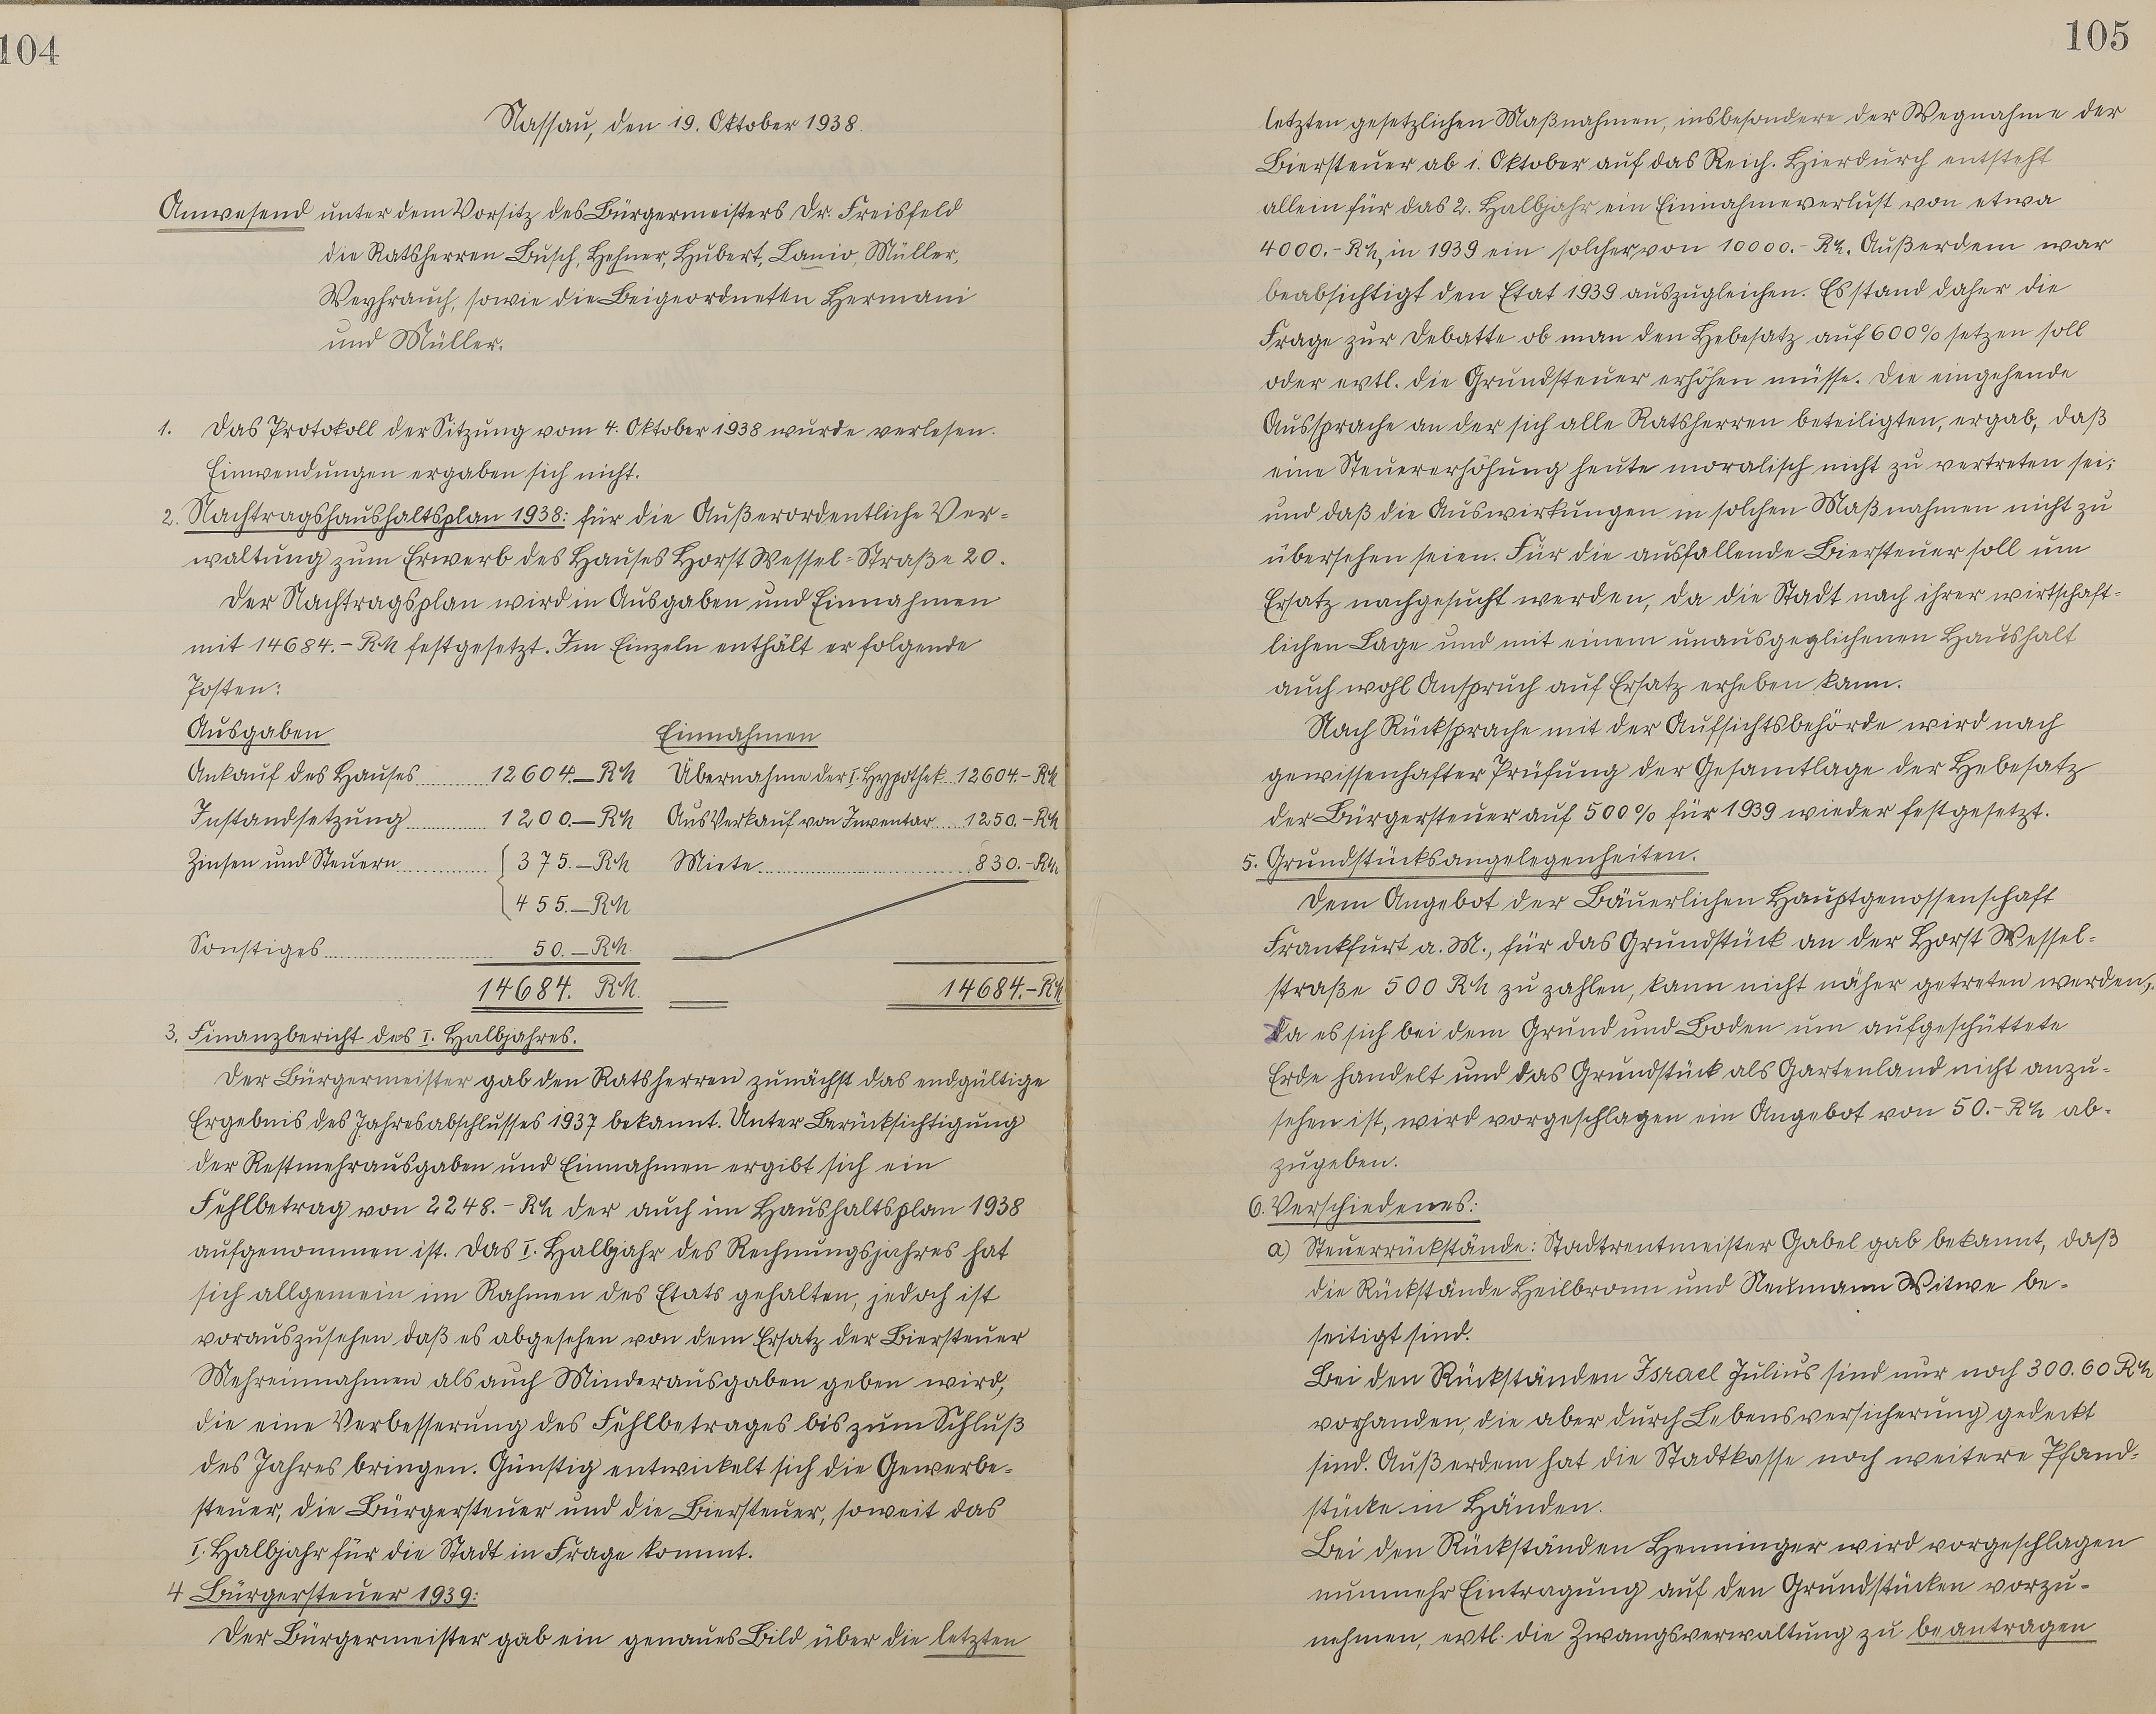 104
Nassau, den 19. Oktober 1938.
Anwesend unter dem Vorsitz des Bürgermeisters Dr. Freisfeld
die Ratsherren Busch, Hehner, Hubert, Lanio, Müller,
Weyhrauch, sowie die Beigeordneten Hermani
und Müller.
1. Das Protokoll der Sitzung vom 4. Oktober 1938 wurde verlesen.
Einwendungen ergaben sich nicht.
2. Nachtragshaushaltsplan 1938: für die Außerordentliche Ver-
waltung zum Erwerb des Hauses Horst Wessel-Straße 20.
Der Nachtragsplan wird in Ausgaben und Einnahmen
mit 14684.- RM festgesetzt. Im Einzeln enthält er folgende
Posten:
Ausgaben Einnahmen
Ankauf des Hauses 12604.- RM Übernahme der I. Hypothek 12604.- RM
Instandsetzung 1200.- RM Aus Verkauf von Inventar 1250.- RM
Zinsen und Steuern 375.- RM Miete 830.- RM
455.- RM
Sonstiges 50.- RM
14684. RM. 14684.- RM
3. Finanzbericht des I. Halbjahres.
Der Bürgermeister gab den Ratsherren zunächst das endgültige
Ergebnis des Jahresabschlusses 1937 bekannt. Unter Berücksichtigung
der Restmehrausgaben und Einnahmen ergibt sich ein
Fehlbetrag von 2248.- RM der auch im Haushaltsplan 1938
aufgenommen ist. Das I. Halbjahr des Rechnungsjahres hat
sich allgemein im Rahmen des Etats gehalten, jedoch ist
vorauszusehen daß es abgesehen von dem Ersatz der Biersteuer
Mehreinnahmen als auch Minderausgaben geben wird,
die eine Verbesserung des Fehlbetrages bis zum Schluß
des Jahres bringen. Günstig entwickelt sich die Gewerbe-
steuer, die Bürgersteuer und die Biersteuer, soweit das
I. Halbjahr für die Stadt in Frage kommt.
4 Bürgersteuer 1939:
Der Bürgermeister gab ein genaues Bild über die letzten
105
letzten gesetzlichen Maßnahmen, insbesondere der Wegnahme der
Biersteuer ab 1. Oktober auf das Reich. Hierdurch entsteht
allein für das 2. Halbjahr ein Einnahmeverlust von etwa
4000.- RM, in 1939 ein solcher von 10000.- RM. Außerdem war
beabsichtigt den Etat 1939 auszugleichen. Es stand daher die
Frage zur Debatte ob man den Hebesatz auf 600% setzen soll
oder evtl. die Grundsteuer erhöhen müsse. Die eingehende
Aussprache an der sich alle Ratsherren beteiligten, ergab, daß
eine Steuererhöhung heute moralisch nicht zu vertreten sei;
und daß die Auswirkungen in solchen Maßnahmen nicht zu
übersehen seien. Für die ausfallende Biersteuer soll um
Ersatz nachgesucht werden, da die Stadt nach ihrer wirtschaft-
lichen Lage und mit einem unausgeglichenen Haushalt
auch wohl Anspruch auf Ersatz erheben kann.
Nach Rücksprache mit der Aufsichtsbehörde wird nach
gewissenhafter Prüfung der Gesamtlage der Hebesatz
der Bürgersteuer auf 500% für 1939 wieder festgesetzt.
5. Grundstücksangelegenheiten.
Dem Angebot der Bäuerlichen Hauptgenossenschaft
Frankfurt a. M., für das Grundstück an der Horst Wessel-
straße 500 RM zu zahlen, kann nicht näher getreten werden,
Da es sich bei dem Grund und Boden um aufgeschüttete
Erde handelt und das Grundstück als Gartenland nicht anzu-
sehen ist, wird vorgeschlagen ein Angebot von 50.- RM ab-
zugeben.
6. Verschiedenes:
a) Steuerrückstände: Stadtrentmeister Gabel gab bekannt, daß
die Rückstände Heilbronn und Neumann Witwe be-
seitigt sind.
Bei den Rückständen Israel Julius sind nur noch 300.60 RM
vorhanden, die aber durch Lebensversicherung gedeckt
sind. Außerdem hat die Stadtkasse noch weitere Pfand-
stücke in Händen.
Bei den Rückständen Henninger wird vorgeschlagen
nunmehr Eintragung auf den Grundstücken vorzu-
nehmen, evtl. die Zwangsverwaltung zu beantragen